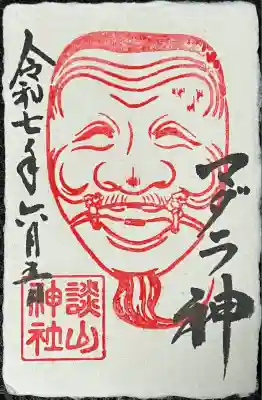 マダラ神
令和七年六月五日
談山
神社